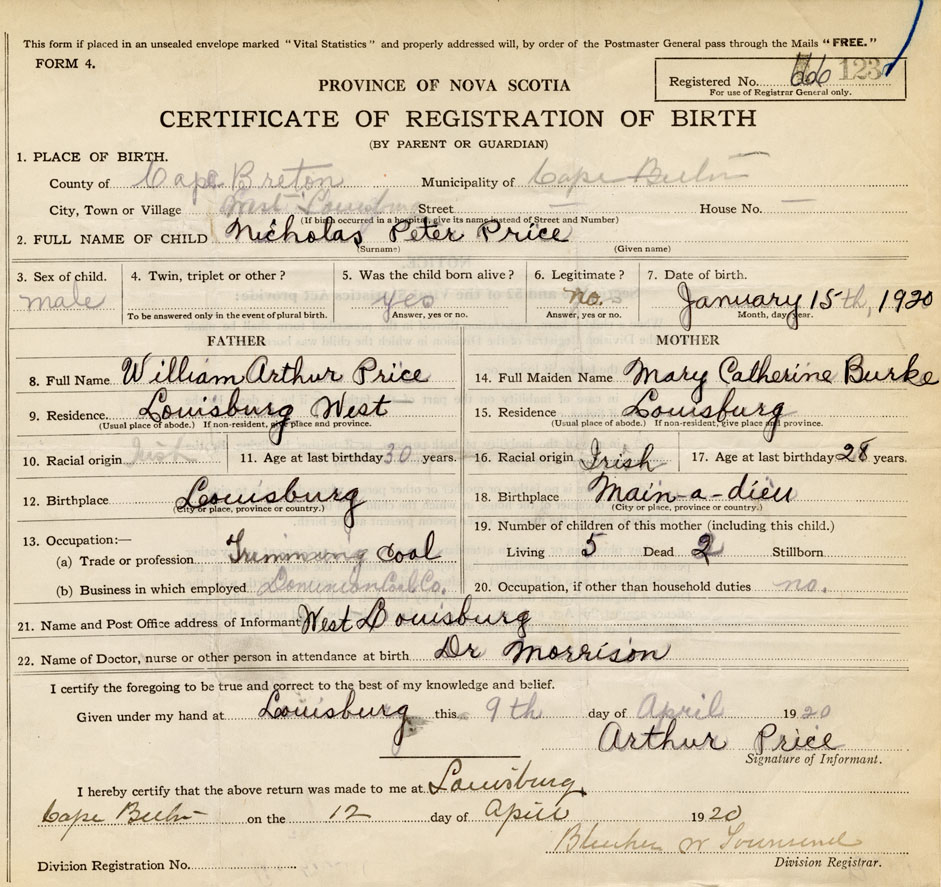 This form if placed in an unsealed envelope marked "Vital Statistics" and properly addressed will, by order of the Postmaster General pass through the Mails "FREE."
FORM 4.
Registered No. 66 123
For use of Registrar General only.
PROVINCE OF NOVA SCOTIA
CERTIFICATE OF REGISTRATION OF BIRTH
(BY PARENT OR GUARDIAN)
1. PLACE OF BIRTH.
County of Cape Breton Municipality of Cape Breton
City, Town or Village West Louisburg Street — House No. —
(If birth occurred in a hospital, give its name instead of Street and Number)
2. FULL NAME OF CHILD Nicholas Peter Price
(Surname) (Given name)
3. Sex of child. 4. Twin, triplet or other? 5. Was the child born alive? 6. Legitimate? 7. Date of birth.
male yes no. January 15th, 1920
To be answered only in the event of plural birth. Answer, yes or no. Answer, yes or no. Month, day, year.
FATHER MOTHER
8. Full Name William Arthur Price 14. Full Maiden Name Mary Catherine Burke
9. Residence Louisburg West 15. Residence Louisburg
(Usual place of abode.) If non-resident, give place and province. (Usual place of abode.) If non-resident, give place and province.
10. Racial origin Irish 11. Age at last birthday 30 years. 16. Racial origin Irish 17. Age at last birthday 28 years.
12. Birthplace Louisburg 18. Birthplace Main-a-dieu
(City or place, province or country.) (City or place, province or country.)
13. Occupation:— 19. Number of children of this mother (including this child.)
(a) Trade or profession Trimming Coal Living 5 Dead 2 Stillborn
(b) Business in which employed Dominion Coal Co. 20. Occupation, if other than household duties no.
21. Name and Post Office address of Informant West Louisburg
22. Name of Doctor, nurse or other person in attendance at birth Dr Morrison
I certify the foregoing to be true and correct to the best of my knowledge and belief.
Given under my hand at Louisburg this 9th day of April 1920
Arthur Price
Signature of Informant.
I hereby certify that the above return was made to me at Louisburg
Cape Breton on the 12 day of April 1920
W Townsend
Division Registration No. Division Registrar.